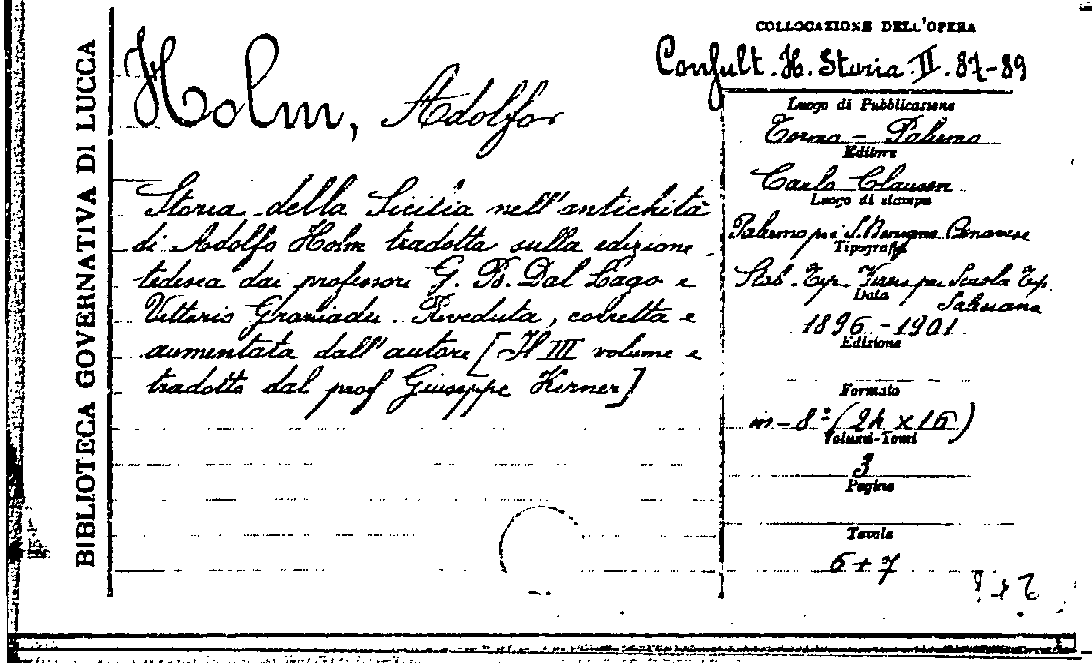 BIBLIOTECA GOVERNATIVA DI LUCCA
Holm, Adolfo
Storia della Sicilia nell'antichità
di Adolfo Holm tradotta sulla edizione
tedesca dai professori G. B. Dal Lago e
Vittorio Graziadei. Riveduta, corretta e
aumentata dall'autore [Il III volume è
tradotto dal prof Giuseppe Kirner]
COLLOCAZIONE DELL'OPERA
Consult. H. Storia II. 87-89
Luogo di Pubblicazione
Torino - Palermo
Editore
Carlo Clausen
Luogo di stampa
Palermo poi S. Benigno Canavese
Tipografia
Stab. Tip. Virzì poi Scuola Tip.
Salesiana
Data
1896-1901
Edizione
Formato
in-8° (24 x 16)
Volumi-Tomi
3
Pagine
Tavole
6+7